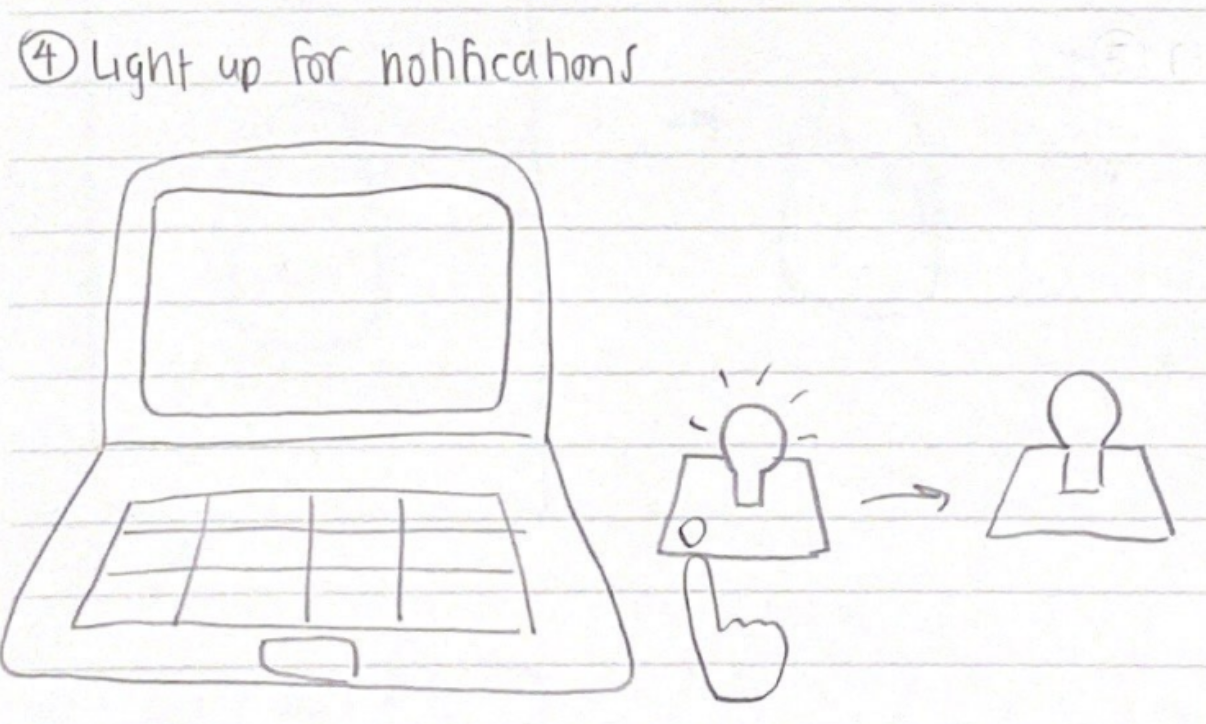 ④ Light up for notifications